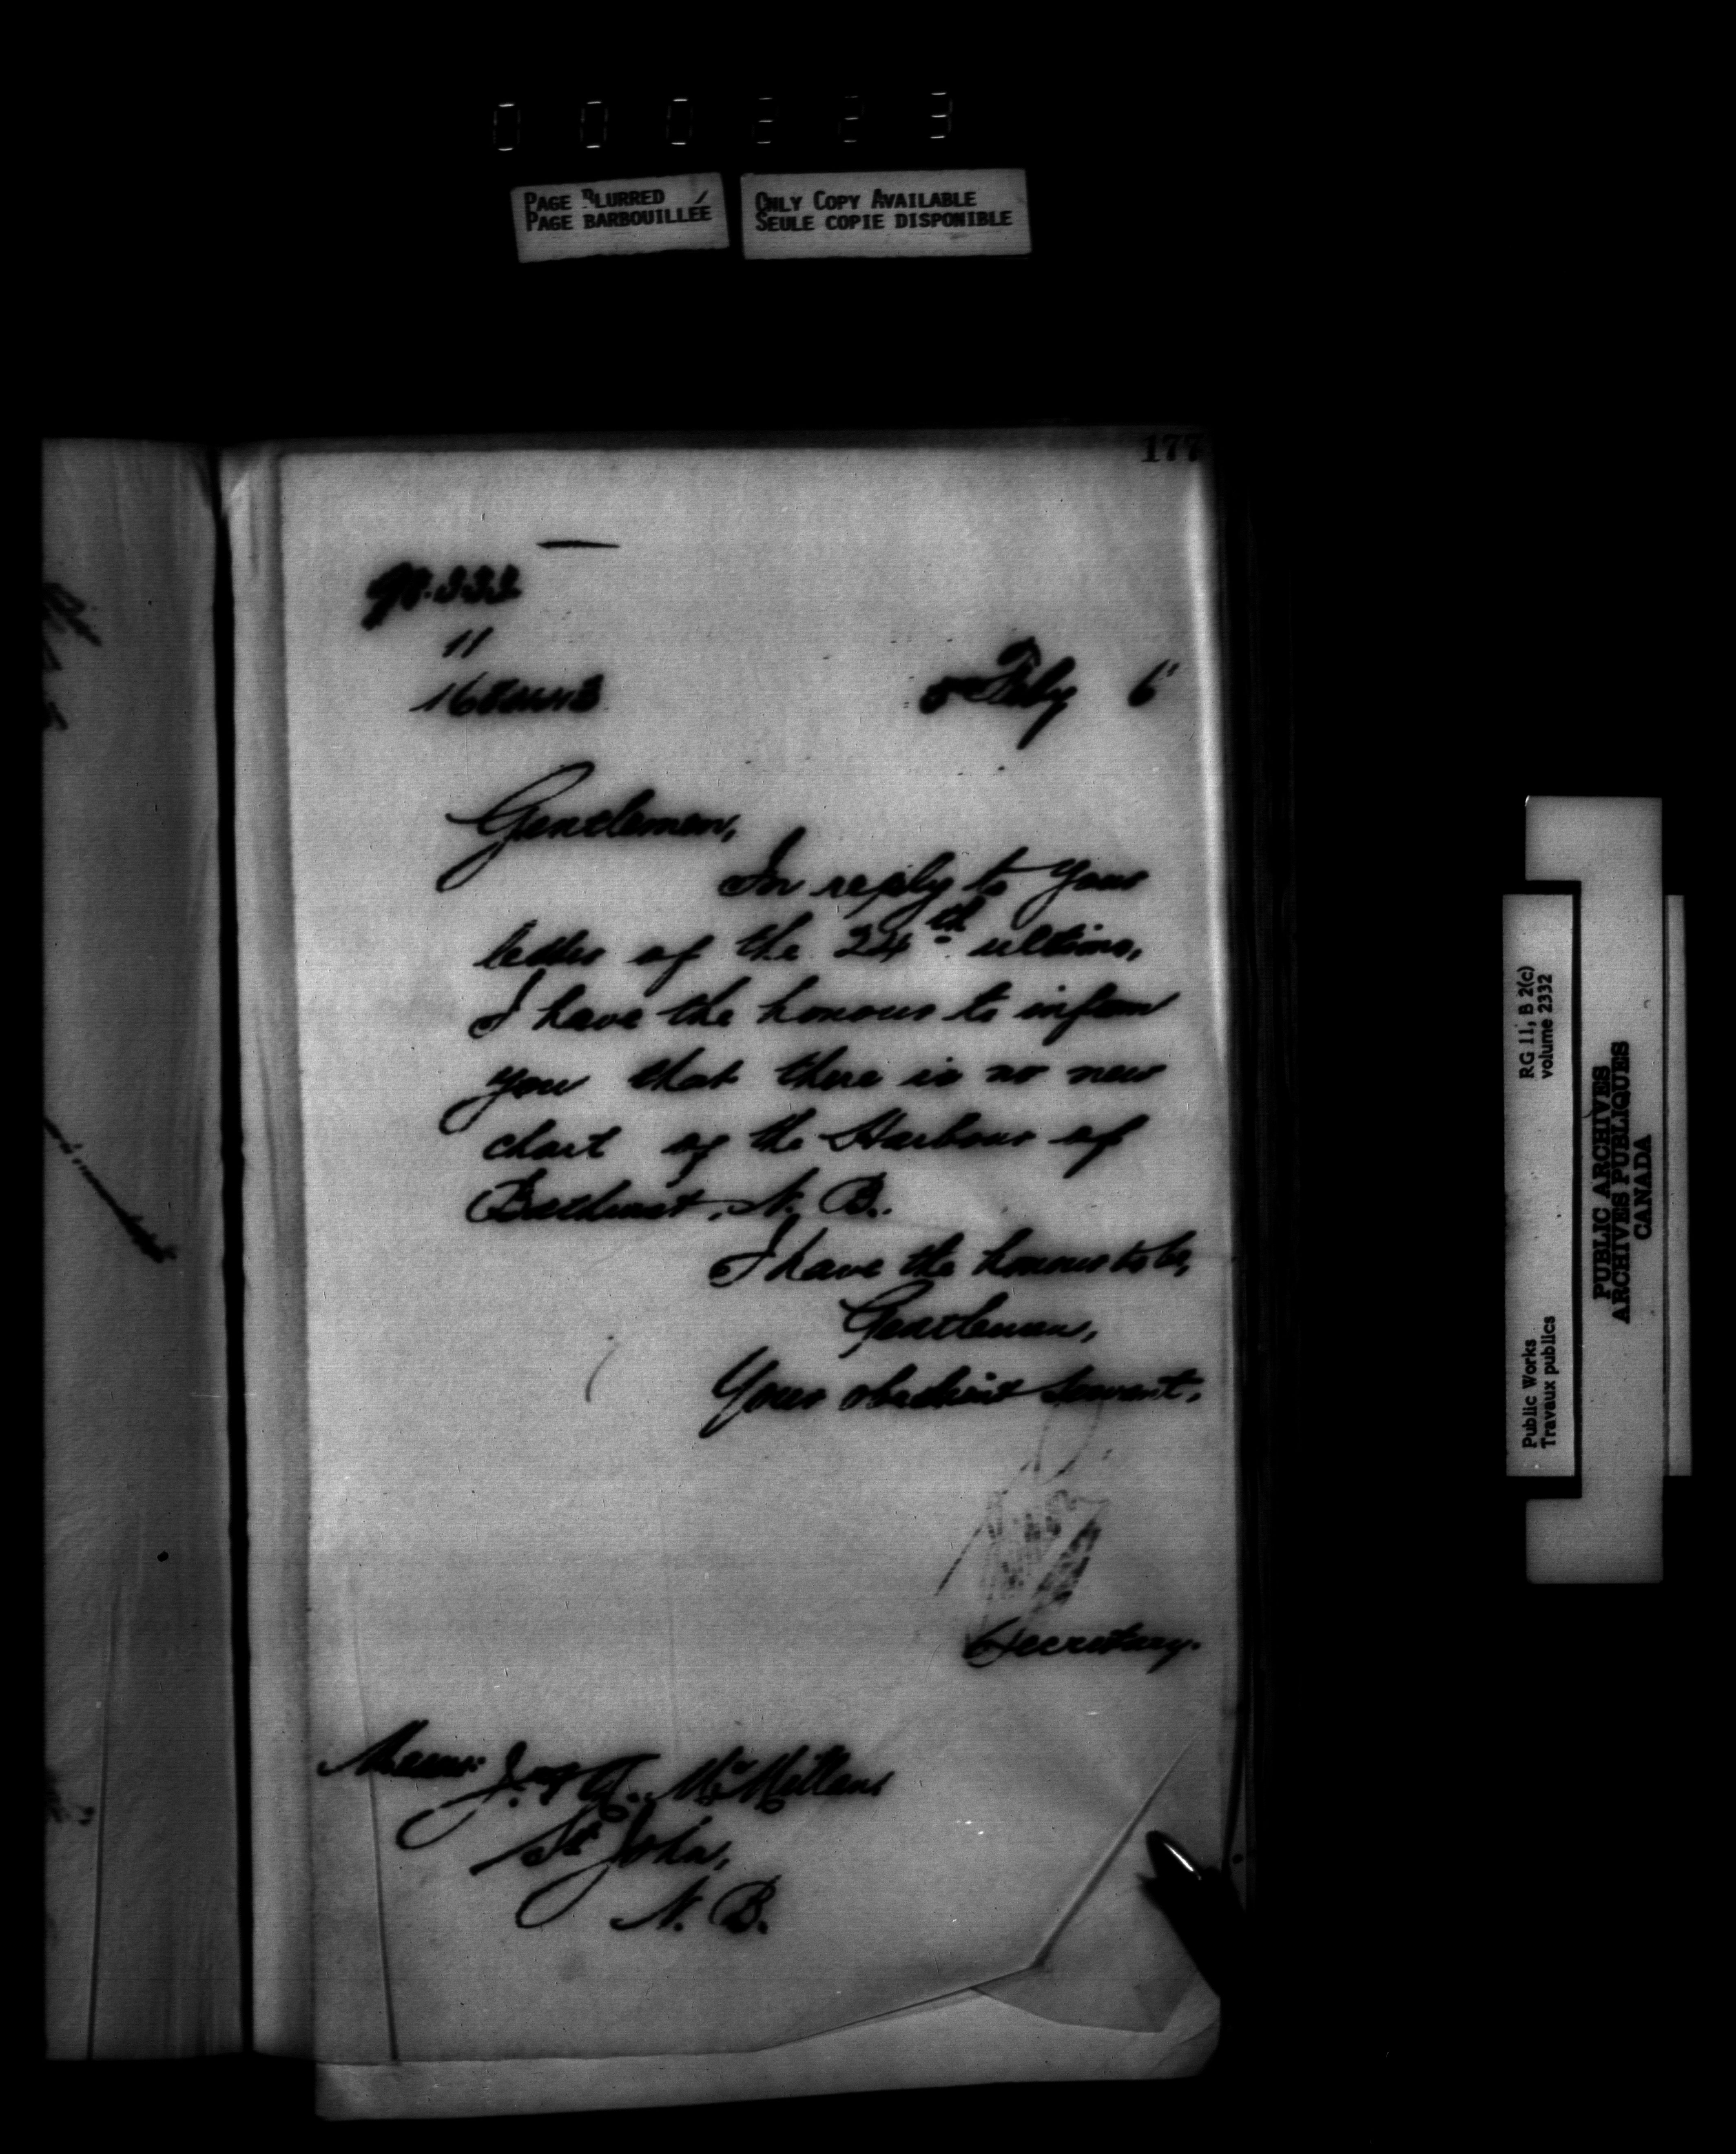 000223
PAGE BLURRED
PAGE BARBOUILLÉE
ONLY COPY AVAILABLE
SEULE COPIE DISPONIBLE
177
11
Feby 6
Gentlemen,
In reply to your
letter of the 24th ultimo,
I have the honour to inform
you that there is no new
chart of the Harbour of
Bathurst, N. B.
I have the honour to be,
Gentlemen,
Your obedient servant,
Secretary.
Messrs J. & A. McMillan
St John,
N. B.
RG 11, B 2(c)
volume 2332
Public Works
Travaux publics
PUBLIC ARCHIVES
ARCHIVES PUBLIQUES
CANADA